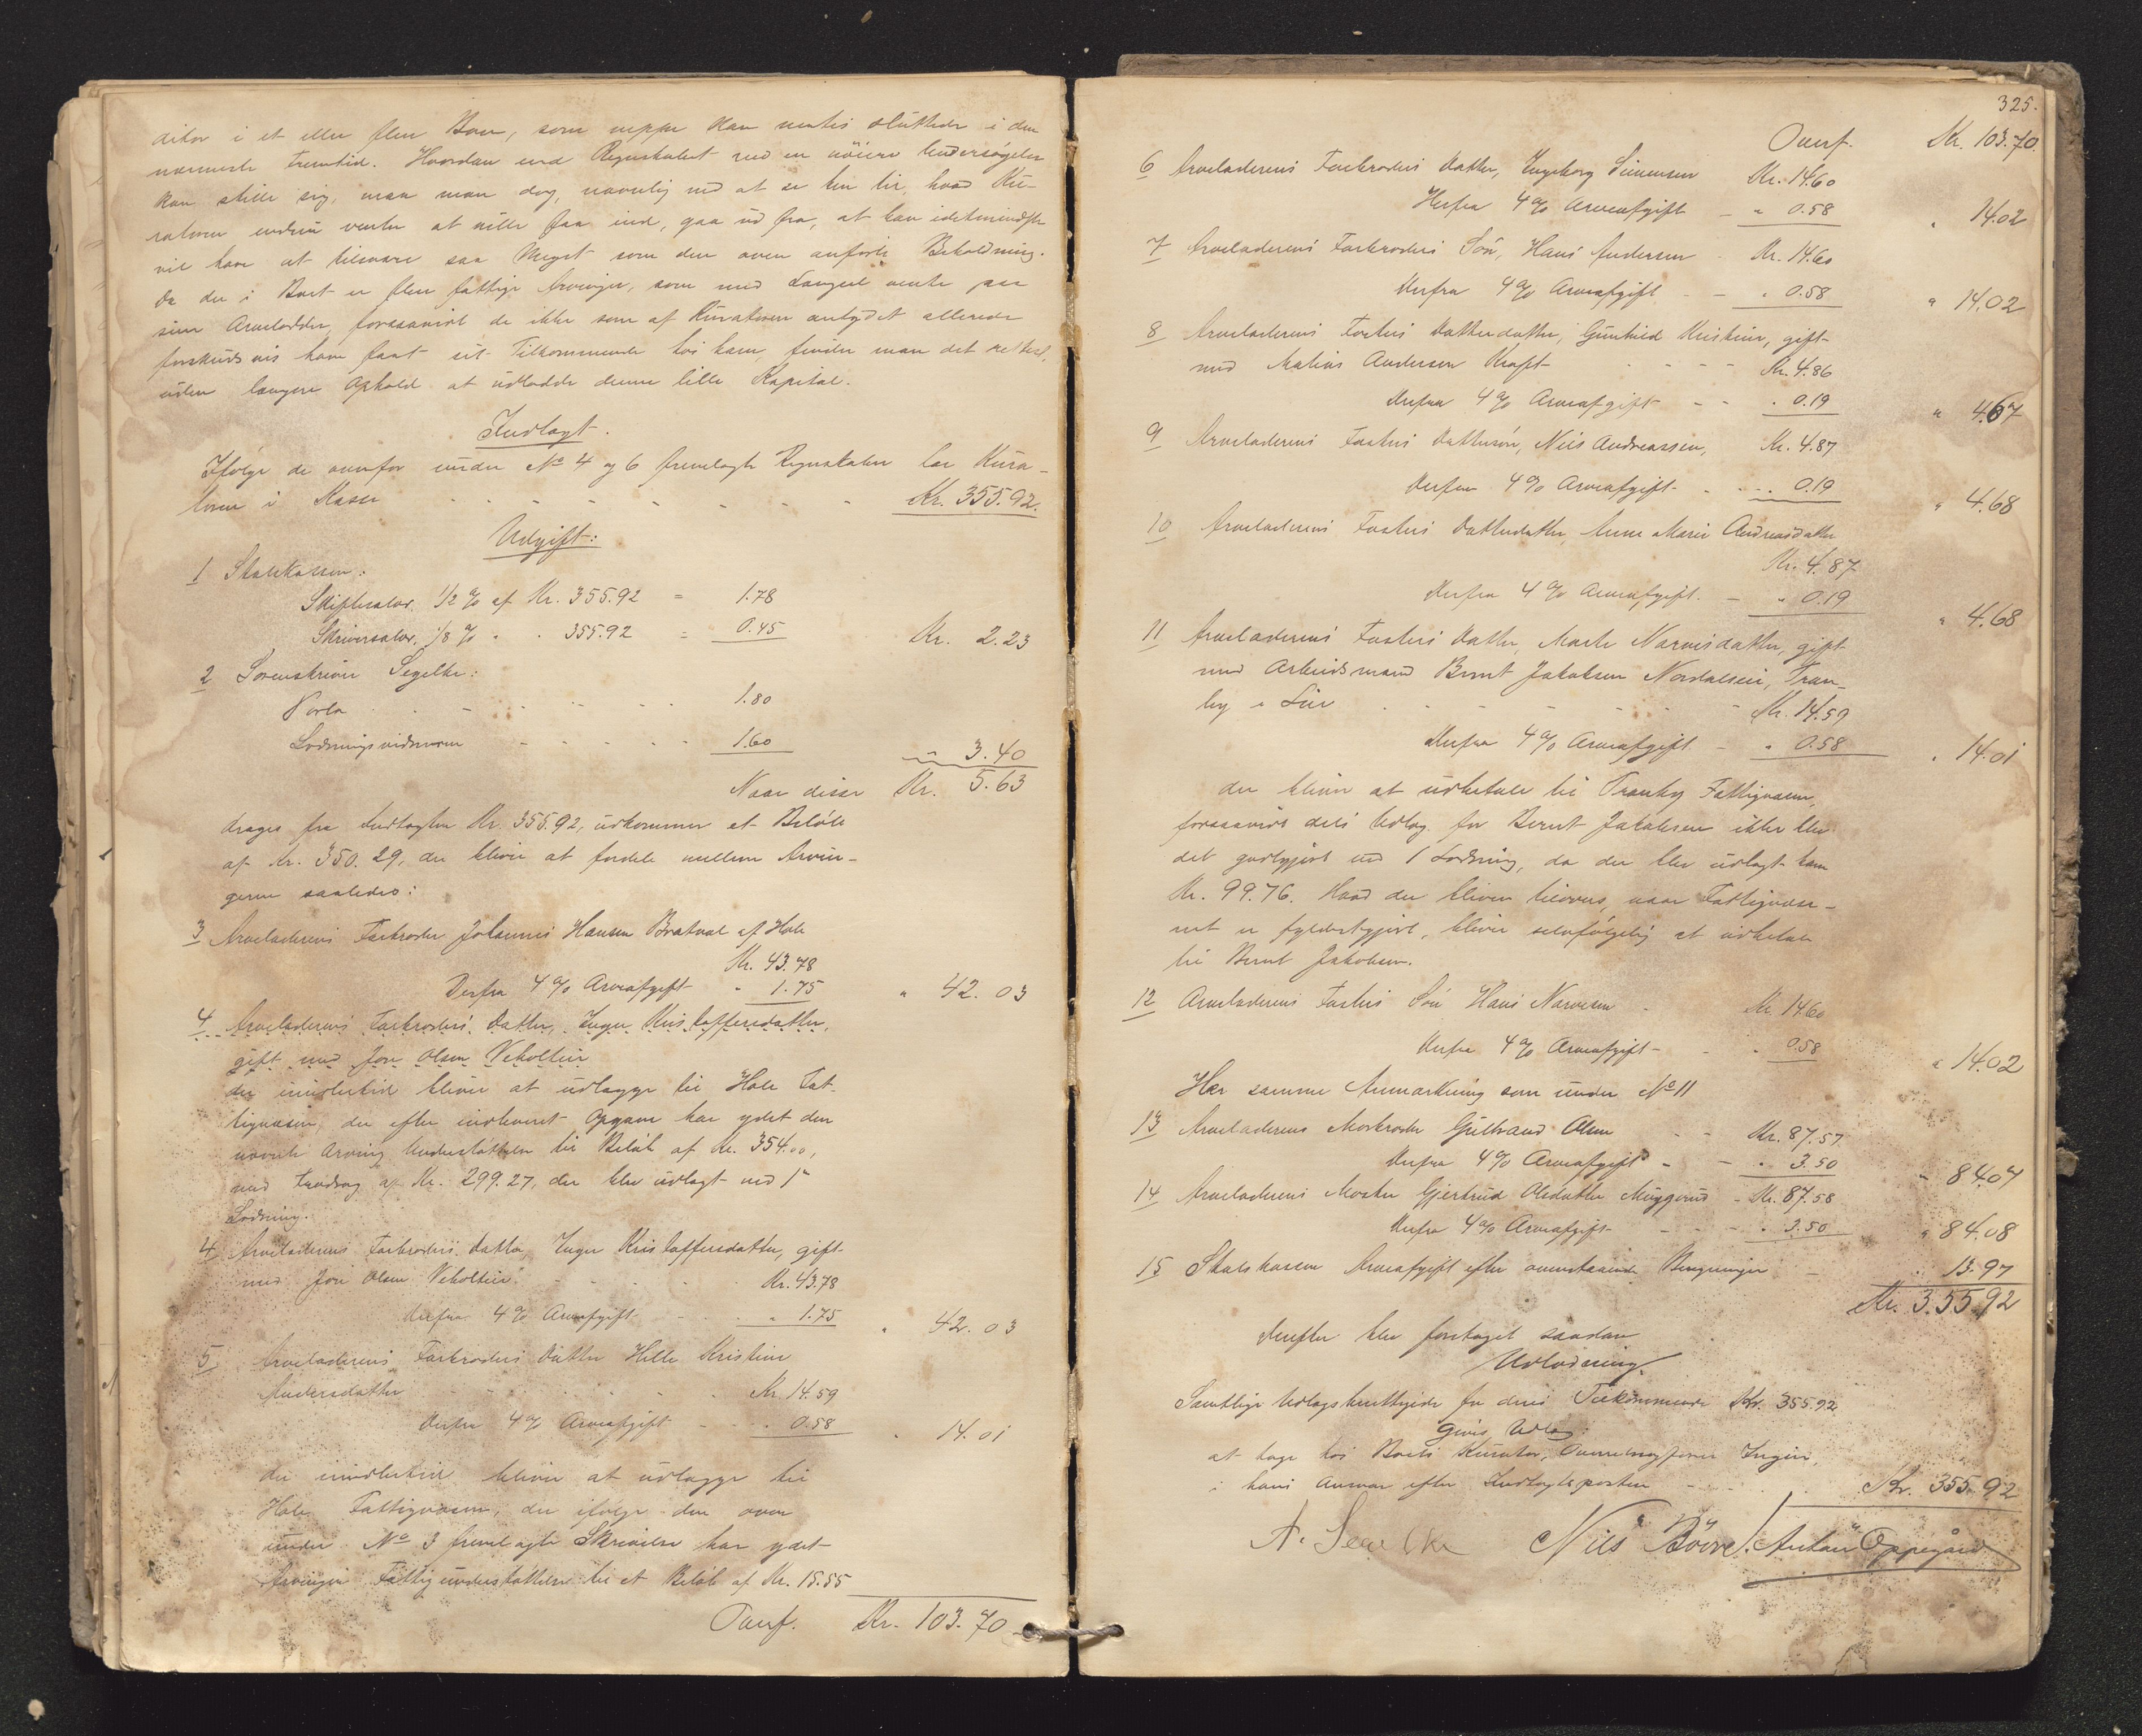 ditor i et eller flere Boer, som neppe kan ventes sluttede i den
nærmeste Fremtid. Hvordan end Regnskabet ved en nöiere Undersögelse
kan stille sig, maa man dog, navnlig ved at se hen til, hvad Ku-
ratoren endnu venter at ville faa ind, gaa ud fra, at han idetmindste
vil have at tilsvare saa Meget som den oven anförte Beholdning.
Da der i Boet er flere fattige Arvinger, som med Længsel vente paa
sine Arvelodder, forsaavidt de ikke som af Kuratoren antydet allerede
forskudsvis have faaet sit Tilkommende hos ham, finder man det rettest,
uden længere Ophold at udlodde denne lille Kapital.
Indtægt.
Ifölge de ovenfor under No 4 og 6 fremlagte Regnskaber har Kura-
toren i Kasse Kr. 355.92.
Udgift:
1 Statskassen:
Skiftesalær 1/2 % af Kr. 355.92 = 1.78
Skriversalær, 1/8 % " " 355.92 = 0.45 Kr. 2.23
2 Sorenskriver Segelke:
Porto 1.80
Lodningsvidnerne 1.60 " 3.40
Naar disse Kr. 5.63
drages fra Indtægten Kr. 355.92, udkommer et Belöb
af Kr. 350.29, der bliver at fordele mellem Arvin-
gerne saaledes:
3 Arveladerens Farbroder Johannes Hansen Bratval af Hole
Kr. 43.78
Derfra 4 % Arveafgift " 1.75 " 42.03
4 Arveladerens Farbroders Datter, Inger Kristoffersdatter,
gift med Jon Olsen Veholteie
der imidlertid bliver at udlægge til Hole Fat-
tigvæsen, der efter indleveret Opgave har ydet den
nævnte Arving Understöttelse til Belöb af Kr. 354.00,
med Fradrag af Kr. 299.27, der blev udlagt ved 1ste
Lodning.
4 Arveladerens Farbroders Datter Inger Kristoffersdatter, gift
med Jon Olsen Veholteie Kr. 43.78
Derfra 4 % Arveafgift " 1.75 " 42.03
5 Arveladerens Farbroders Datter Helle Kristine
Andersdatter Kr. 14.59
Derfra 4 % Arveafgift " 0.58 " 14.01
der imidlertid bliver at udlægge til
Hole Fattigvæsen, der ifölge den oven
under No 3 fremlagte Skrivelse har ydet
Arvingen Fattigunderstöttelse til et Belöb af Kr. 15.55
Overf. Kr. 103.70
325.
Overf. Kr. 103.70.
6 Arveladerens Farbroders Datter, Ingeborg Simensen Kr. 14.60
Herfra 4 % Arveafgift " 0.58 " 14.02
7 Arveladerens Farbroders Sön, Hans Andersen Kr. 14.60
Derfra 4 % Arveafgift " 0.58 " 14.02
8 Arveladerens Fasters Datterdatter, Gunhild Kristine, gift
med Matias Andersen Kraft Kr. 4.86
Derfra 4 % Arveafgift " 0.19 " 4.67
9 Arveladerens Fasters Dattersön, Nils Andreassen, Kr. 4.87
Derfra 4 % Arveafgift " 0.19 " 4.68
10 Arveladerens Fasters Datterdatter, Anne Marie Andreasdatter
Kr. 4.87
Derfra 4 % Arveafgift. " 0.19 " 4.68
11 Arveladerens Fasters Datter, Marte Narvesdatter, gift
med Arbeidsmand Bernt Jakobsen Nordalseie, Tran-
by i Lier Kr. 14.59
Derfra 4 % Arveafgift " 0.58 " 14.01
der bliver at udbetale til Tranby Fattigvæsen,
forsaavidt dets Udlæg for Bernt Jakobsen ikke blev
det godtgjort ved 1 Lodning, da der blev udlagt ham
Kr. 99.76. Hvad der bliver tilovers, naar Fattigvæse-
net er fyldestgjort, bliver selvfölgelig at udbetale
til Bernt Jakobsen.
12 Arveladerens Fasters Sön Hans Narvesen Kr. 14.60
Derfra 4 % Arveafgift " 0.58 " 14.02
Her samme Anmærkning som under No 11
13 Arveladerens Morbroder Gulbrand Olsen Kr. 87.57
Derfra 4 % Arveafgift " 3.50 " 84.07
14 Arveladerens Moster Gjertrud Olsdatter Muggerud Kr. 87.58
Derfra 4 % Arveafgift " 3.50 " 84.08
15 Statskassen Arveafgift efter ovenstaaende Beregninger " 13.97
Kr. 355.92
Derefter blev foretaget saadan
Udlodning.
Samtlige Udlægsberettigede for deres Tilkommende Kr. 355.92
gives Udlæg:
at tage hos Boets Kurator, Overretssagförer Ingier,
i hans Ansvar efter Indtægtsposten Kr. 355.92
A. Segelke Nils Böve Anton Oppegård